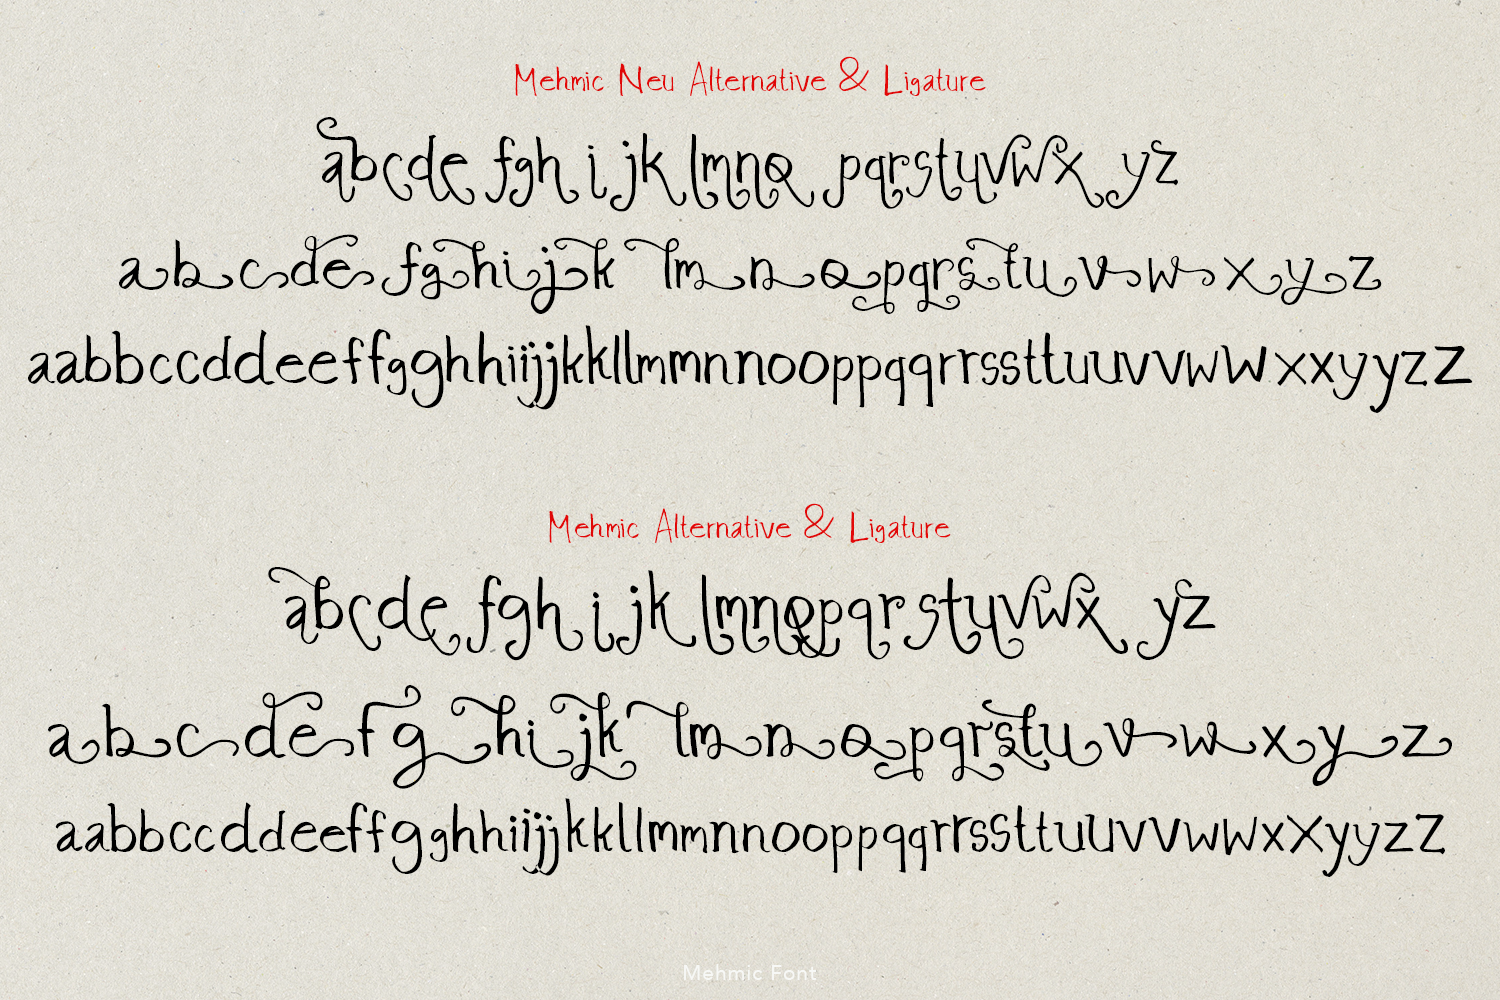 Mehmic Neu Alternative & Ligature
abcde fgh i jk lmno pqrstuvwx yz
abcde fghijk lmnopqrstuvwxyz
aabbccddeeffgghhiijjkkllmmnnooppqqrrssttuuvvwwxxyyzz
Mehmic Alternative & Ligature
abcde fgh i jk lmnopqrstuvwx yz
abcdefghijk lmnopqrstuvwxyz
aabbccddeeffgghhiijjkkllmmnnooppqqrrssttuuvvwwxxyyzz
Mehmic Font